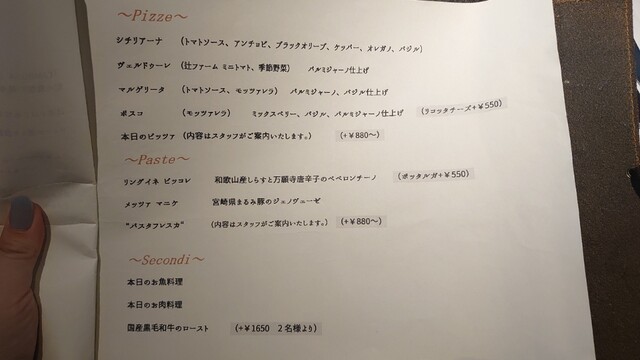 ～Pizze～
シチリアーナ （トマトソース、アンチョビ、ブラックオリーブ、ケッパー、オレガノ、バジル）
ヴェルドゥーレ （辻ファーム ミニトマト、季節野菜） パルミジャーノ仕上げ
マルゲリータ （トマトソース、モッツァレラ） パルミジャーノ、バジル仕上げ
ボスコ （モッツァレラ） ミックスベリー、バジル、パルミジャーノ仕上げ （リコッタチーズ+￥550）
本日のピッツァ （内容はスタッフがご案内いたします。） （+￥880～）
～Paste～
リングイネ ビッコレ 和歌山産しらすと万願寺唐辛子のペペロンチーノ （ボッタルガ+￥550）
メッツァ マニケ 宮崎県まるみ豚のジェノヴェーゼ
“パスタフレスカ” （内容はスタッフがご案内いたします。） （+￥880～）
～Secondi～
本日のお魚料理
本日のお肉料理
国産黒毛和牛のロースト （+￥1650 2名様より）